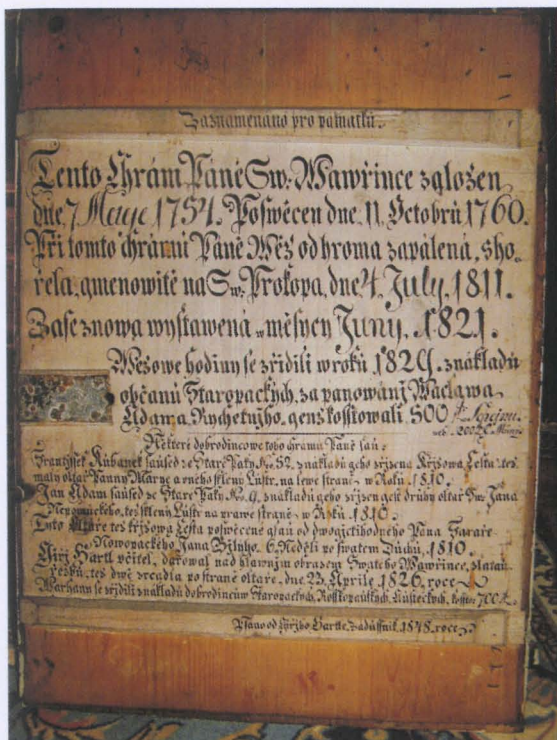 Zaznamenáno pro památku.
Tento Chrám Páně Sw: Wawřince založen
dne 7 Maye 1754. Poswěcen dne 11. Octobrů 1760.
Při tomto chrámu Páně Wěž od hroma zapálená, sho-
řela, gmenowitě na Sw: Prokopa, dne 4. July, 1811.
Zase znowa wystawená w měsycy Juny, 1821.
Wěžowe hodiny se zřídili w roků 1829. z nákladů
občanů Staropackých, za panowánj Wáclawa
Adama, Rychetnjho, genž kosstowali 500
Někteří dobrodincowe toho chramu Páně saů:
Frantyšek Kubanek saused ze Staré Paky Nro. 52. z nákladu geho zřjzena Křjžowa Cesta, tež
malý oltař Panny Marye a wněho sklený Lustr, na lewe straně w Roků 1810.
Jan Adam saused ze Staré Paky Nro. 9. z nákladu geho zřjzen gest druhý oltář Sw: Jana
Nepomuckeho, tež sklený Lustr na prawe straně w Roků 1810.
Tyto Oltáře tež křjžowa Cesta poswěcené gsau od dwogjctihodneho Pana Faráře
Nowopackého Jana Bilyho, 6. Neděli po swatem Duchů, 1810.
Giřj Hartl učitel, darowal nad hlawnjm obrazem Swateho Wawřince, zlatau
řezbů, tež dwě zrcadla po straně oltáře, dne 23. Aprile, 1826, roce
Warhany se zřjdili z nákladů dobrodincůw Staropackých, Rosskopackých, Austeckých, 700
Psano od Giřjho Hartle, Zádussnik, 1848. roce